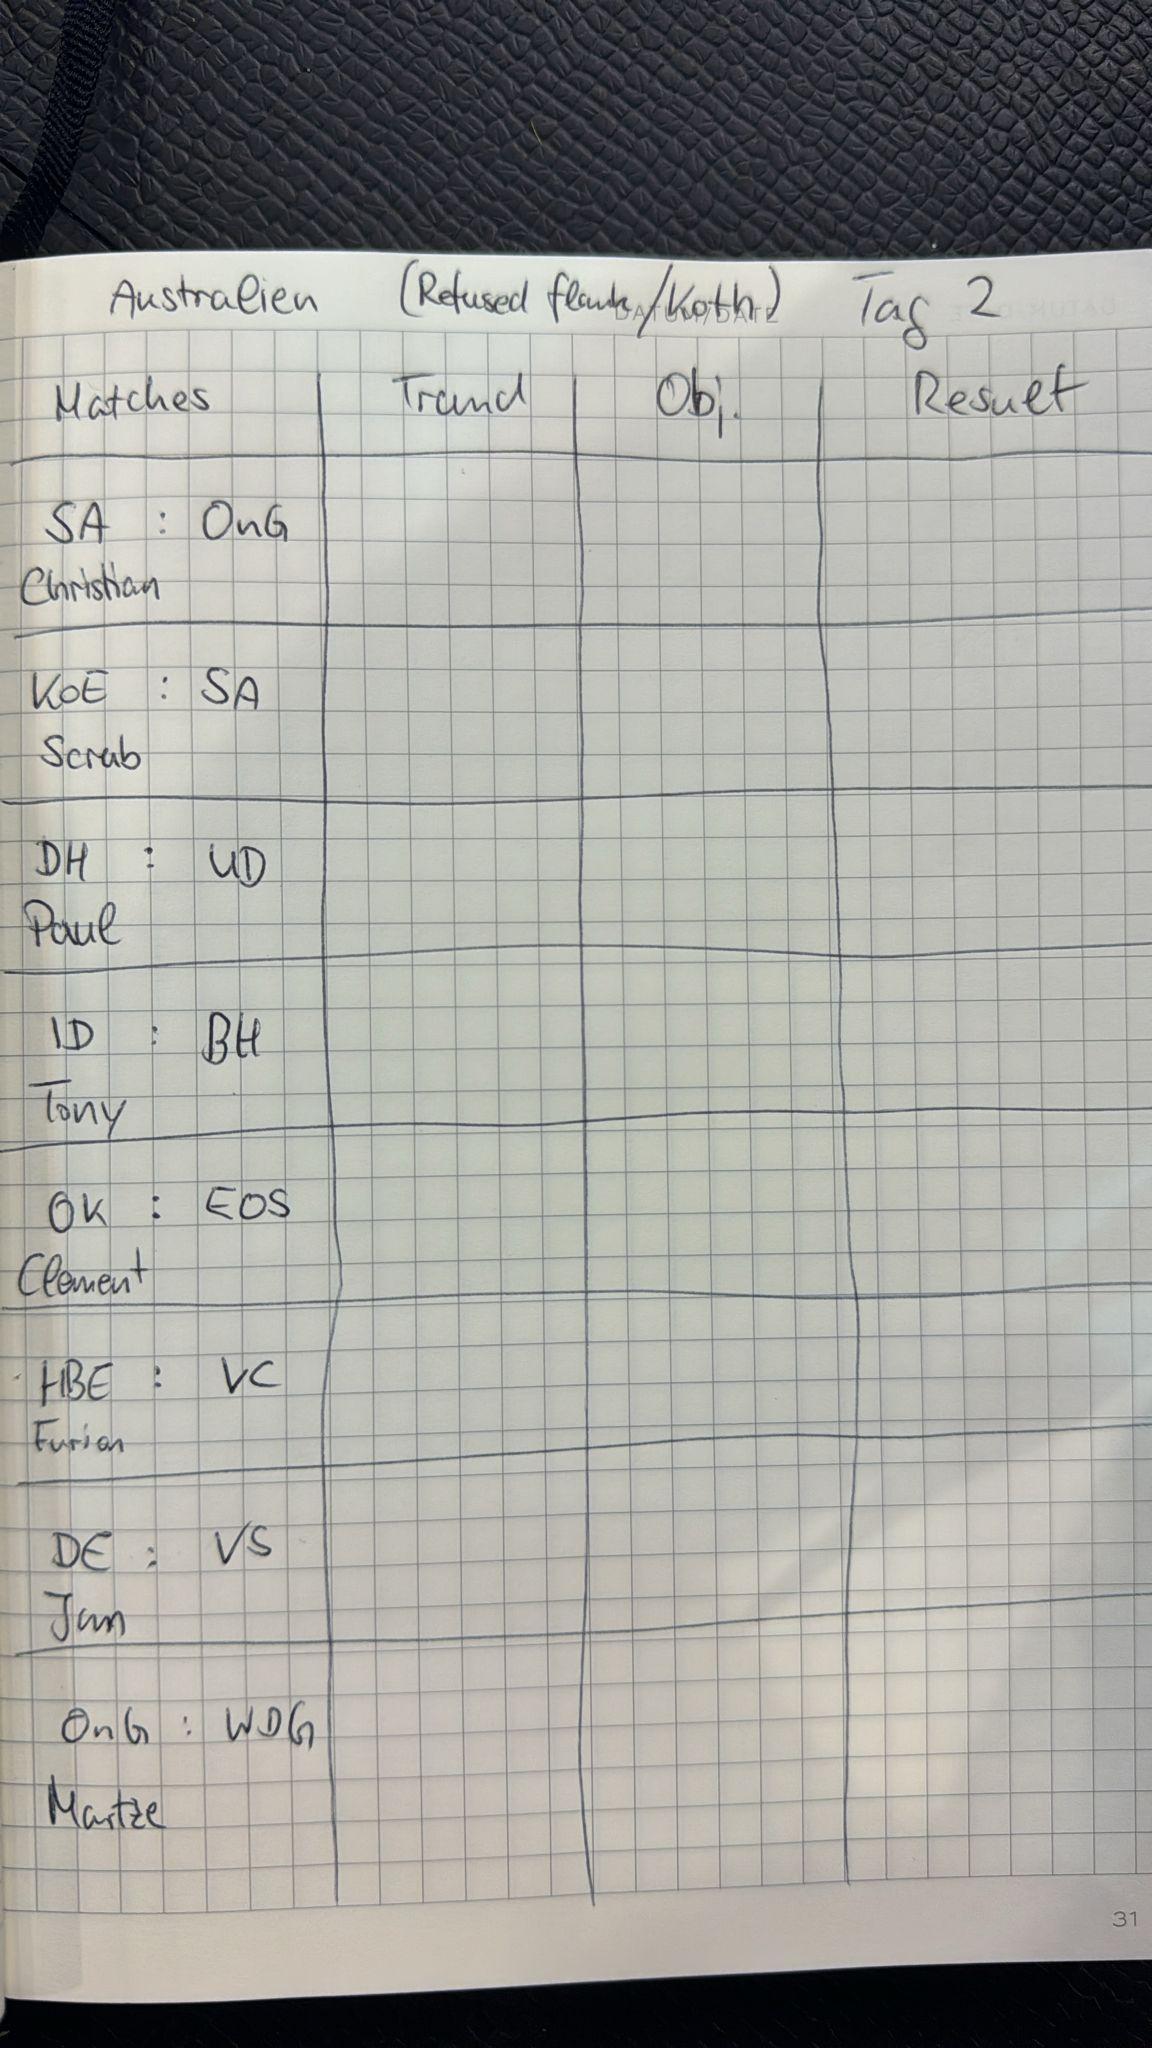 Australien (Refused flank/Koth) Tag 2
DATUM/DATE
Matches Trend Obj. Result
SA : OnG
Christian
KoE : SA
Scrub
DH : UD
Paul
ID : BH
Tony
OK : EOS
Clement
HBE : VC
Furion
DE : VS
Jan
OnG : WDG
Martze
31